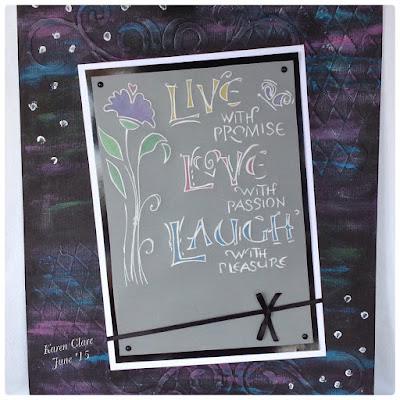 LIVE
WITH
PROMISE
LOVE
WITH
PASSION
LAUGH
WITH
PLEASURE
Karen Clare
June '15